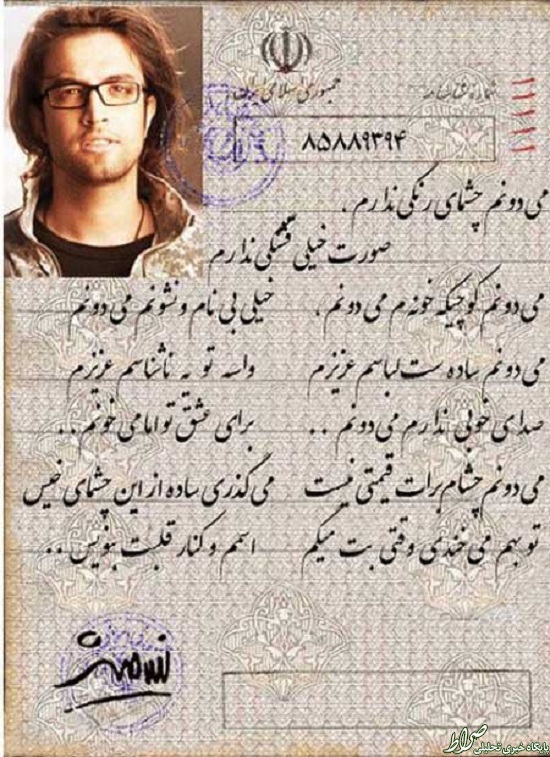 جمهوری اسلامی ایران
۱۱۱۱۱
۸۵۸۸۹۳۹۴
می دونم چشمای رنگی ندارم .
صورت خیلی قشنگی ندارم
می دونم کوچیکه خونه م می دونم . خیلی بی نام و نشونم می دونم
می دونم ساده ست لباسم عزیزم واسه تو یه ناشناسم عزیزم
صدای خوبی ندارم می دونم . . برای عشق تو اما می خونم . .
می دونم چشام برات قیمتی نیست می گذری ساده از این چشمای خیس
تو بهم می خندی وقتی بت میگم اسم و کنار قلبت بنویس . .
صراط
پایگاه خبری تحلیلی